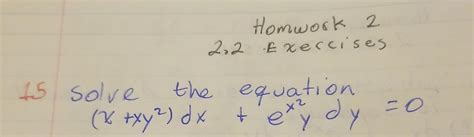 Homwork 2
2.2 Exercises
15 Solve the equation
(x + xy²) dx + e^{x²} y dy = 0